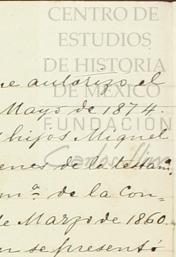 CENTRO DE
ESTUDIOS
DE HISTORIA
DE MÉXICO
FUNDACIÓN
Carlos Slim
e autorizo el
Mayo de 1874.
hijos Miguel
enes de la testam
mª. de la Con-
de Marzo de 1860.
se presentó